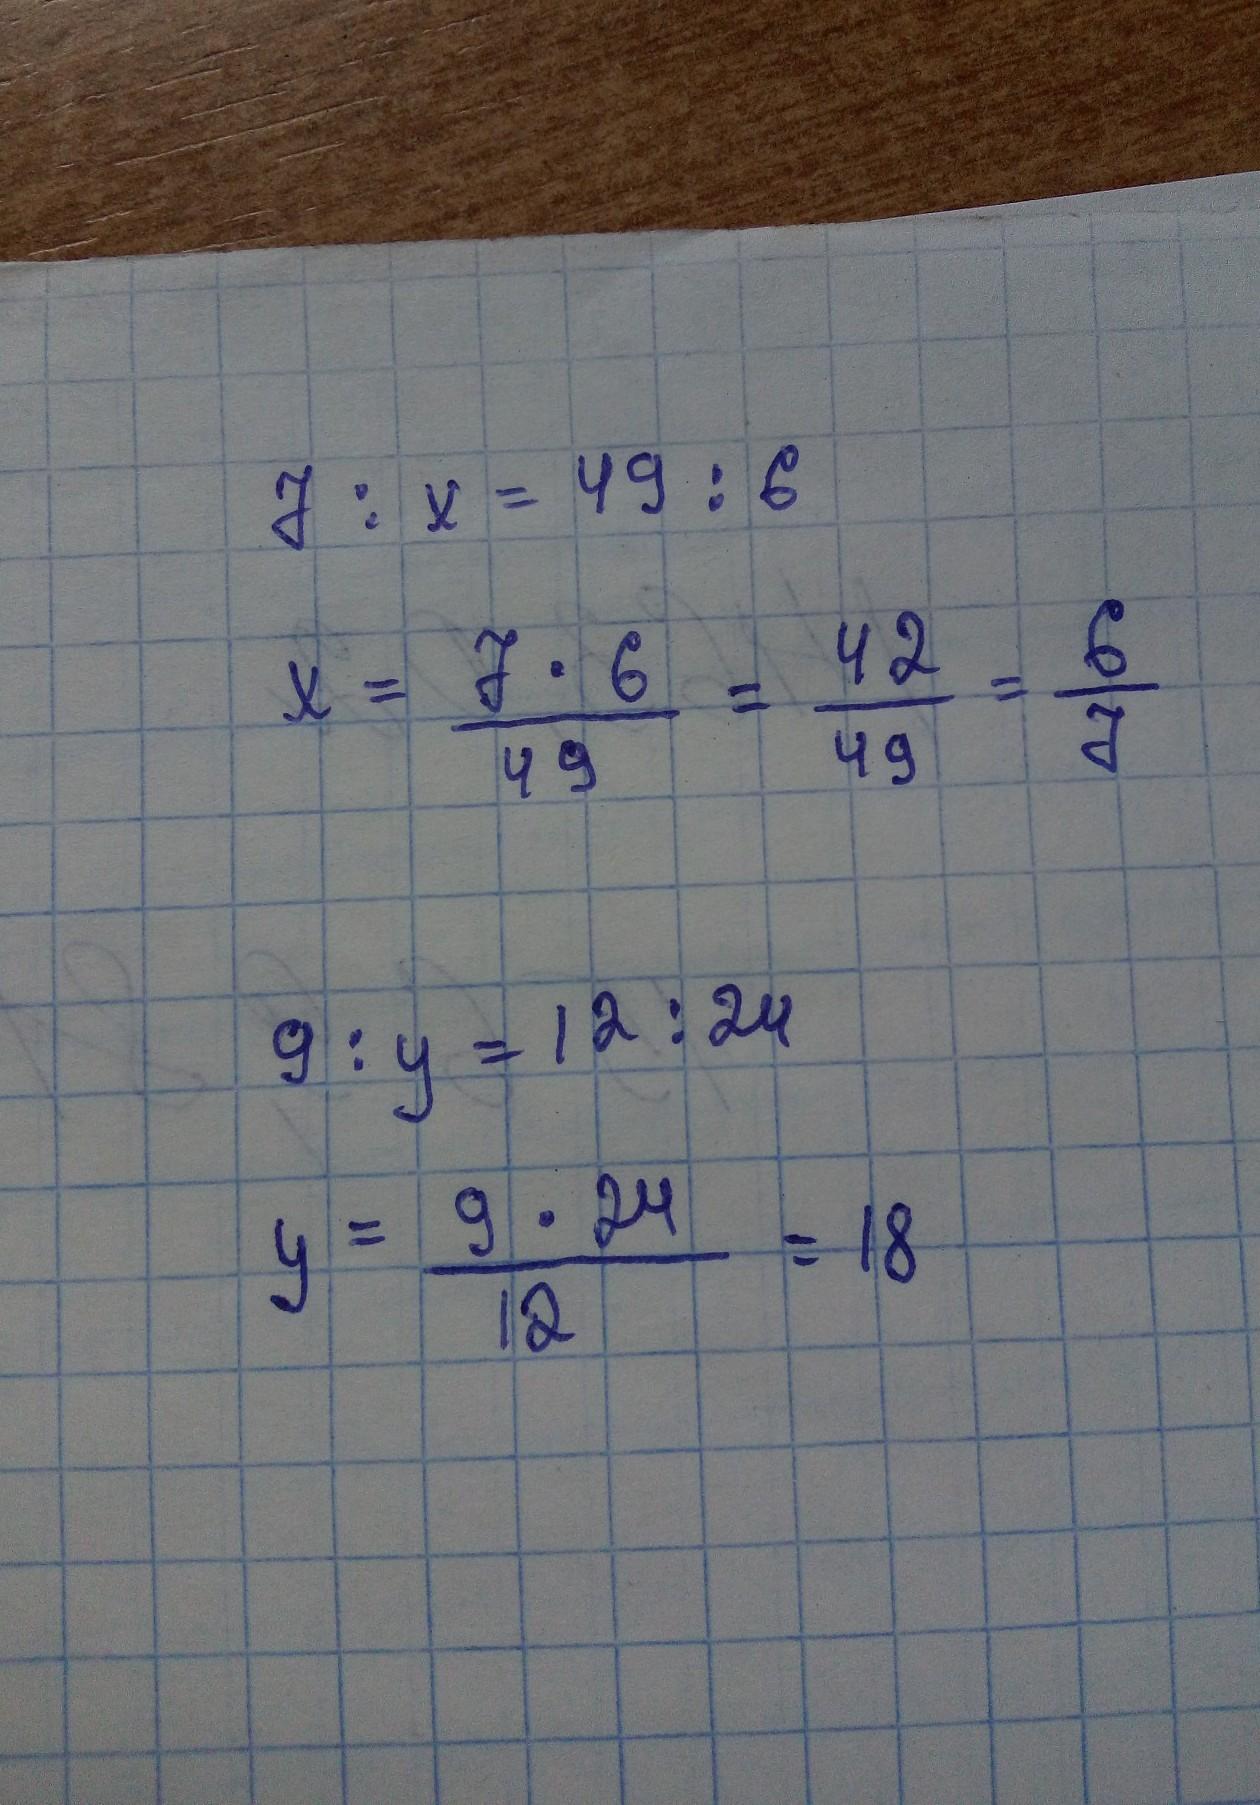 7 : x = 49 : 6
x = 7 · 6 / 49 = 42 / 49 = 6 / 7
9 : y = 12 : 24
y = 9 · 24 / 12 = 18